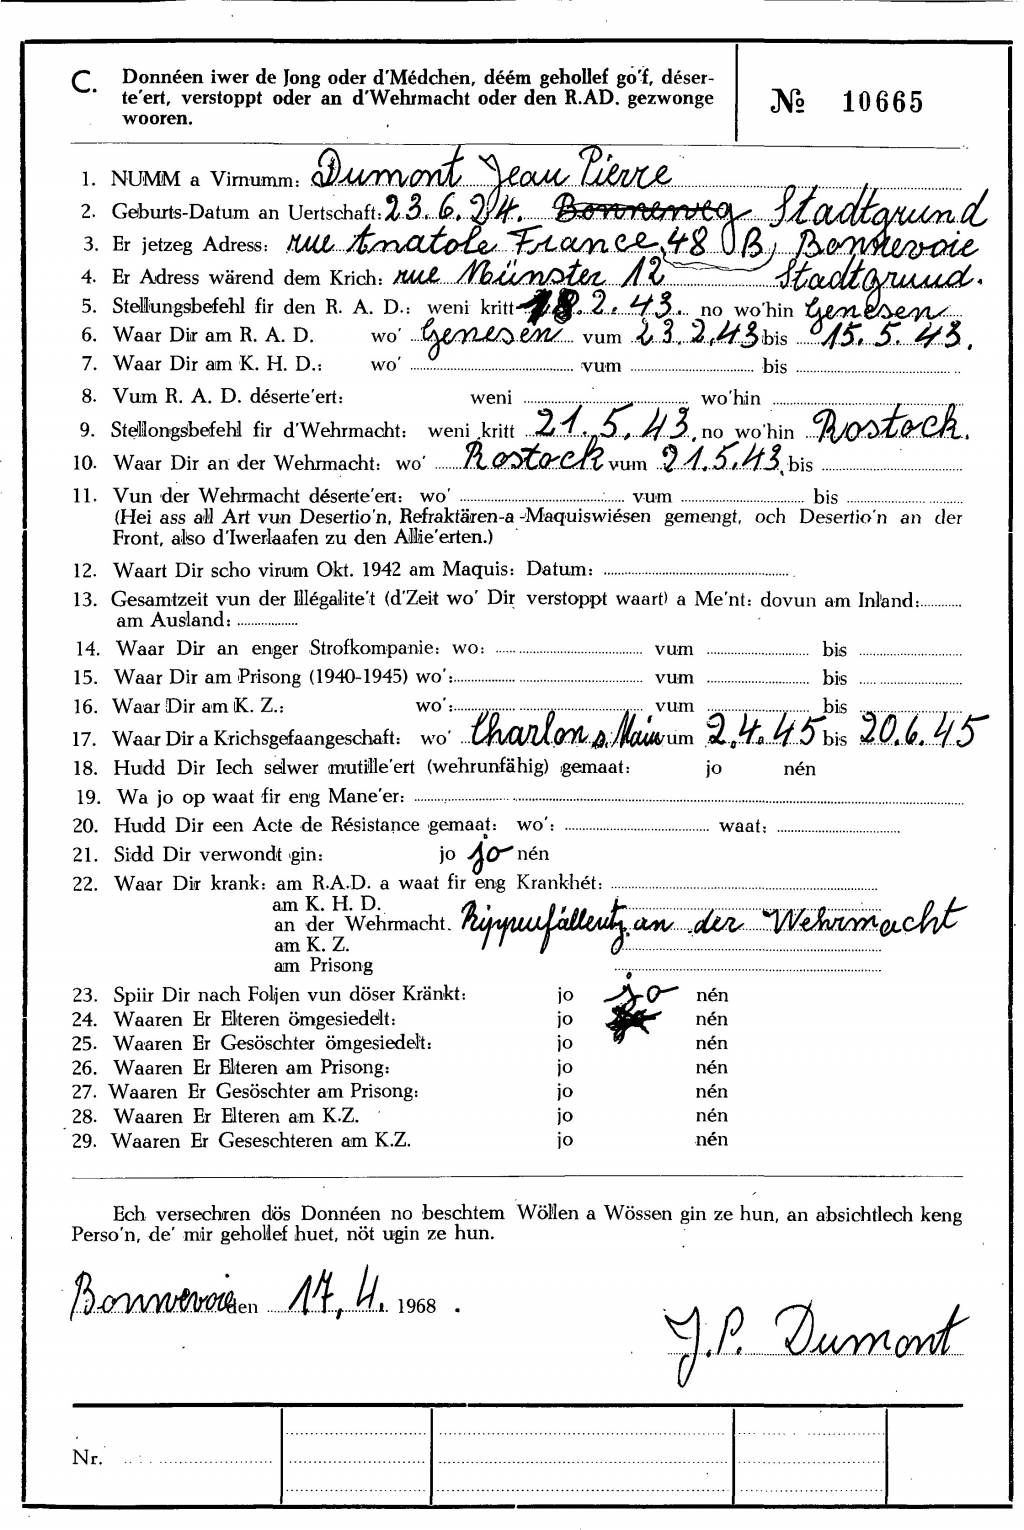 C. Donnéen iwer de Jong oder d'Médchen, déém gehollef go'f, déser-
te'ert, verstoppt oder an d'Wehrmacht oder den R.AD. gezwonge
wooren.
№ 10665
1. NUMM a Virnumm: Dumont Jean Pierre
2. Geburts-Datum an Uertschaft: 23.6.24. Bonneweg Stadtgrund
3. Er jetzeg Adress: rue Anatole France 48 B, Bonnevoie
4. Er Adress wärend dem Krich: rue Münster 12 Stadtgrund.
5. Stellungsbefehl fir den R. A. D.: weni kritt 18.2.43. no wo'hin Genesen
6. Waar Dir am R. A. D. wo' Genesen vum 23.2.43 bis 15.5.43.
7. Waar Dir am K. H. D.: wo' vum bis
8. Vum R. A. D. déserte'ert: weni wo'hin
9. Stellongsbefehl fir d'Wehrmacht: weni kritt 21.5.43. no wo'hin Rostock.
10. Waar Dir an der Wehrmacht: wo' Rostock vum 21.5.43. bis
11. Vun der Wehrmacht déserte'ert: wo' vum bis
(Hei ass all Art vun Desertio'n, Refraktären-a -Maquiswiésen gemengt, och Desertio'n an der
Front, also d'Iwerlaafen zu den Allie'erten.)
12. Waart Dir scho virum Okt. 1942 am Maquis: Datum:
13. Gesamtzeit vun der Illégalite't (d'Zeit wo' Dir verstoppt waart) a Me'nt: dovun am Inland:
am Ausland:
14. Waar Dir an enger Strofkompanie: wo: vum bis
15. Waar Dir am Prisong (1940-1945) wo': vum bis
16. Waar Dir am K. Z.: wo': vum bis
17. Waar Dir a Krichsgefaangeschaft: wo' Charlon s. Main vum 2.4.45 bis 20.6.45
18. Hudd Dir Iech selwer mutille'ert (wehrunfähig) gemaat: jo nén
19. Wa jo op waat fir eng Mane'er:
20. Hudd Dir een Acte de Résistance gemaat: wo': waat:
21. Sidd Dir verwondt gin: jo jo nén
22. Waar Dir krank: am R.A.D. a waat fir eng Krankhét:
am K. H. D.
an der Wehrmacht. Rippenfällentz. an der Wehrmacht
am K. Z.
am Prisong
23. Spiir Dir nach Foljen vun döser Kränkt: jo jo nén
24. Waaren Er Elteren ömgesiedelt: jo nén
25. Waaren Er Gesöschter ömgesiedelt: jo nén
26. Waaren Er Elteren am Prisong: jo nén
27. Waaren Er Gesöschter am Prisong: jo nén
28. Waaren Er Elteren am K.Z. jo nén
29. Waaren Er Geseschteren am K.Z. jo nén
Ech versechren dös Donnéen no beschtem Wöllen a Wössen gin ze hun, an absichtlech keng
Perso'n, de' mir gehollef huet, nöt ugin ze hun.
Bonnevoie den 17.4. 1968.
J.P. Dumont
Nr.